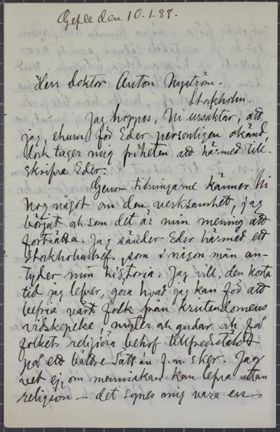 Gefle den 10.1.88.
Herr doktor Anton Nyström.
Stockholm.
Jag hoppes, Ni ursäktar, att
jag, ehuru för Eder personligen okänd
dock tager mig friheten att härmed till-
skrifva Eder.
Genom tidningarne känner Ni
nog något om den verksamhet, jag
börjat och som det är min mening att
fortsätta. Jag sänder Eder härmed ett
som i någon mån an-
tyder min historia. Jag vill, den korta
tid jag lefver, göra hvad jag kan för att
befria vårt folk från kristendomens
vidskepelse, myter och gudar och få
folkets religiösa behof tillfredsstäldt
på ett bättre sätt än j. n. sker. Jag
vet ej, om menniskan kan lefva utan
religion — det synes mig vara en